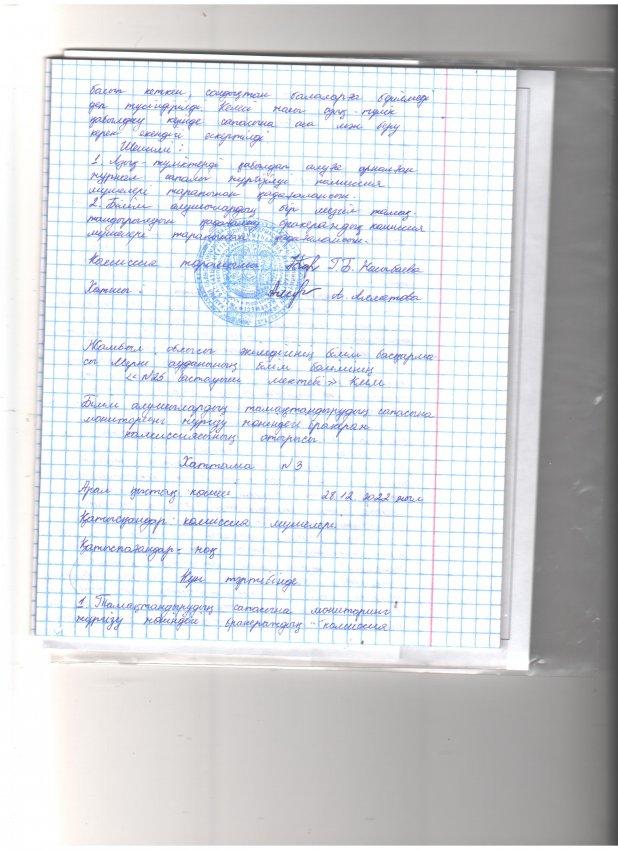 басып кеткен, сондықтан балаларға берілмеді
деп түсіндірілді. Келесі жолы азық-түлік
қабылдау кезінде сапасына аса мән беру
керек екендігі ескертілді.
Шешімі:
1. Азық-түліктерді қабылдап алуға арналған
журнал сапалы жүргізілуі комиссия
мүшелері тарапынан қадағалансын.
2. Білім алушылардың бір мезгіл тамақ-
тандырылуын қадағалау бракераждық комиссия
мүшелері тарапынан қадағалансын.
Комиссия төрайымы Г.Б.
Хатшы: А.
Жамбыл облысы әкімдігінің білім басқарма
сы Меркі ауданының білім бөлімінің
«№25 бастауыш мектебі» КММ
Білім алушылардың тамақтандырудың сапасына
мониторинг жүргізу жөніндегі бракераж
комиссиясының отырысы
Хаттама №3
Арал қыстың көшесі 28.12.2022 жыл
Қатысқандар: комиссия мүшелері
Қатыспағандар - жоқ
Күн тәртібінде
1. Тамақтандырудың сапасына мониторинг
жүргізу жөніндегі бракераждық комиссия